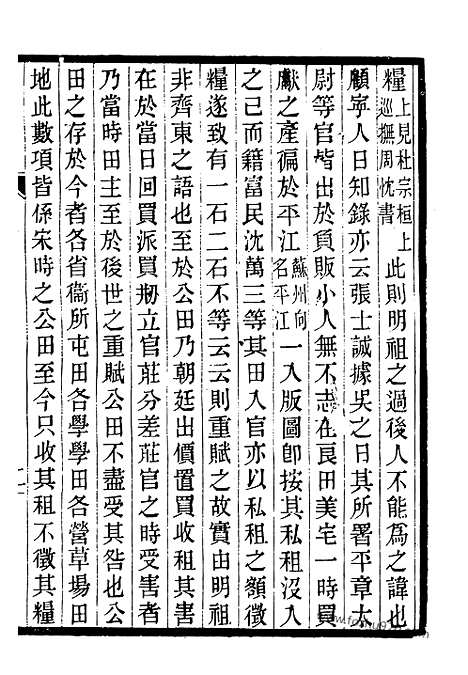 糧上見杜宗桓上巡撫周忱書此則明祖之過後人不能爲之諱也
顧寧人日知錄亦云張士誠據吳之日其所署平章太
尉等官皆出於負販小人無不志在良田美宅一時買
獻之產徧於平江蘇州向名平江一入版圖卽按其私租没入
之已而籍富民沈萬三等其田入官亦以私租之額徵
糧遂致有一石二石不等云云則重賦之故實由明祖
非齊東之語也至於公田乃朝廷出價置買收租其害
在於當日回買派買刱立官莊分差莊官之時受害者
乃當時田主至於後世之重賦公田不盡受其咎也公
田之存於今者各省衞所屯田各學學田各營草場田
地此數項皆係宋時之公田至今只收其租不徵其糧